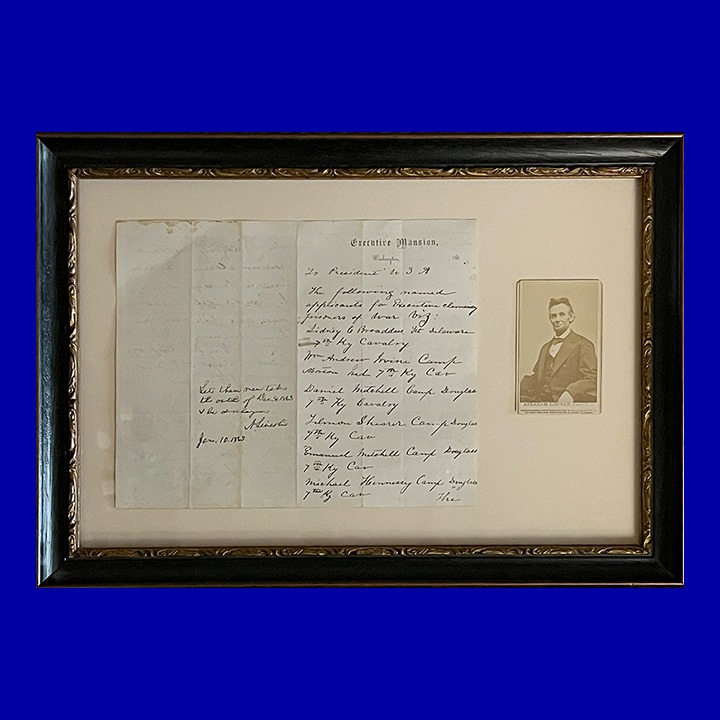 Let these men take
the oath of Dec. 8. 1863
& be discharged
A. Lincoln
Jan. 10. 186
Executive Mansion,
Washington,
186
To President U S A
The following named
applicants for Executive clemency
prisoners of War Viz:
Sidney C Broaddus Ft Delaware
7th Ky Cavalry
Wm Andrew Irvine Camp
Morton Ind. 7th Ky Cav
Daniel Mitchell Camp Douglas
7th Ky Cavalry
Shearer Camp Douglas
7th Ky Cav
Emanuel Mitchell Camp Douglass
7th Ky Cav
Michael Hennessy Camp Douglass
7th Ky Cav
The
ABRAHAM LINCOLN